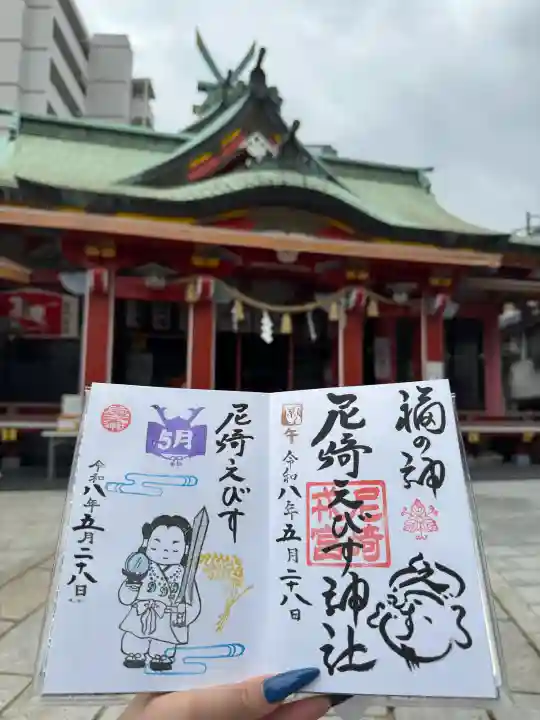 福の神
尼崎えびす神社
尼崎戎宮
午
令和八年五月二十八日
尼崎えびす
5月
令和八年五月二十八日